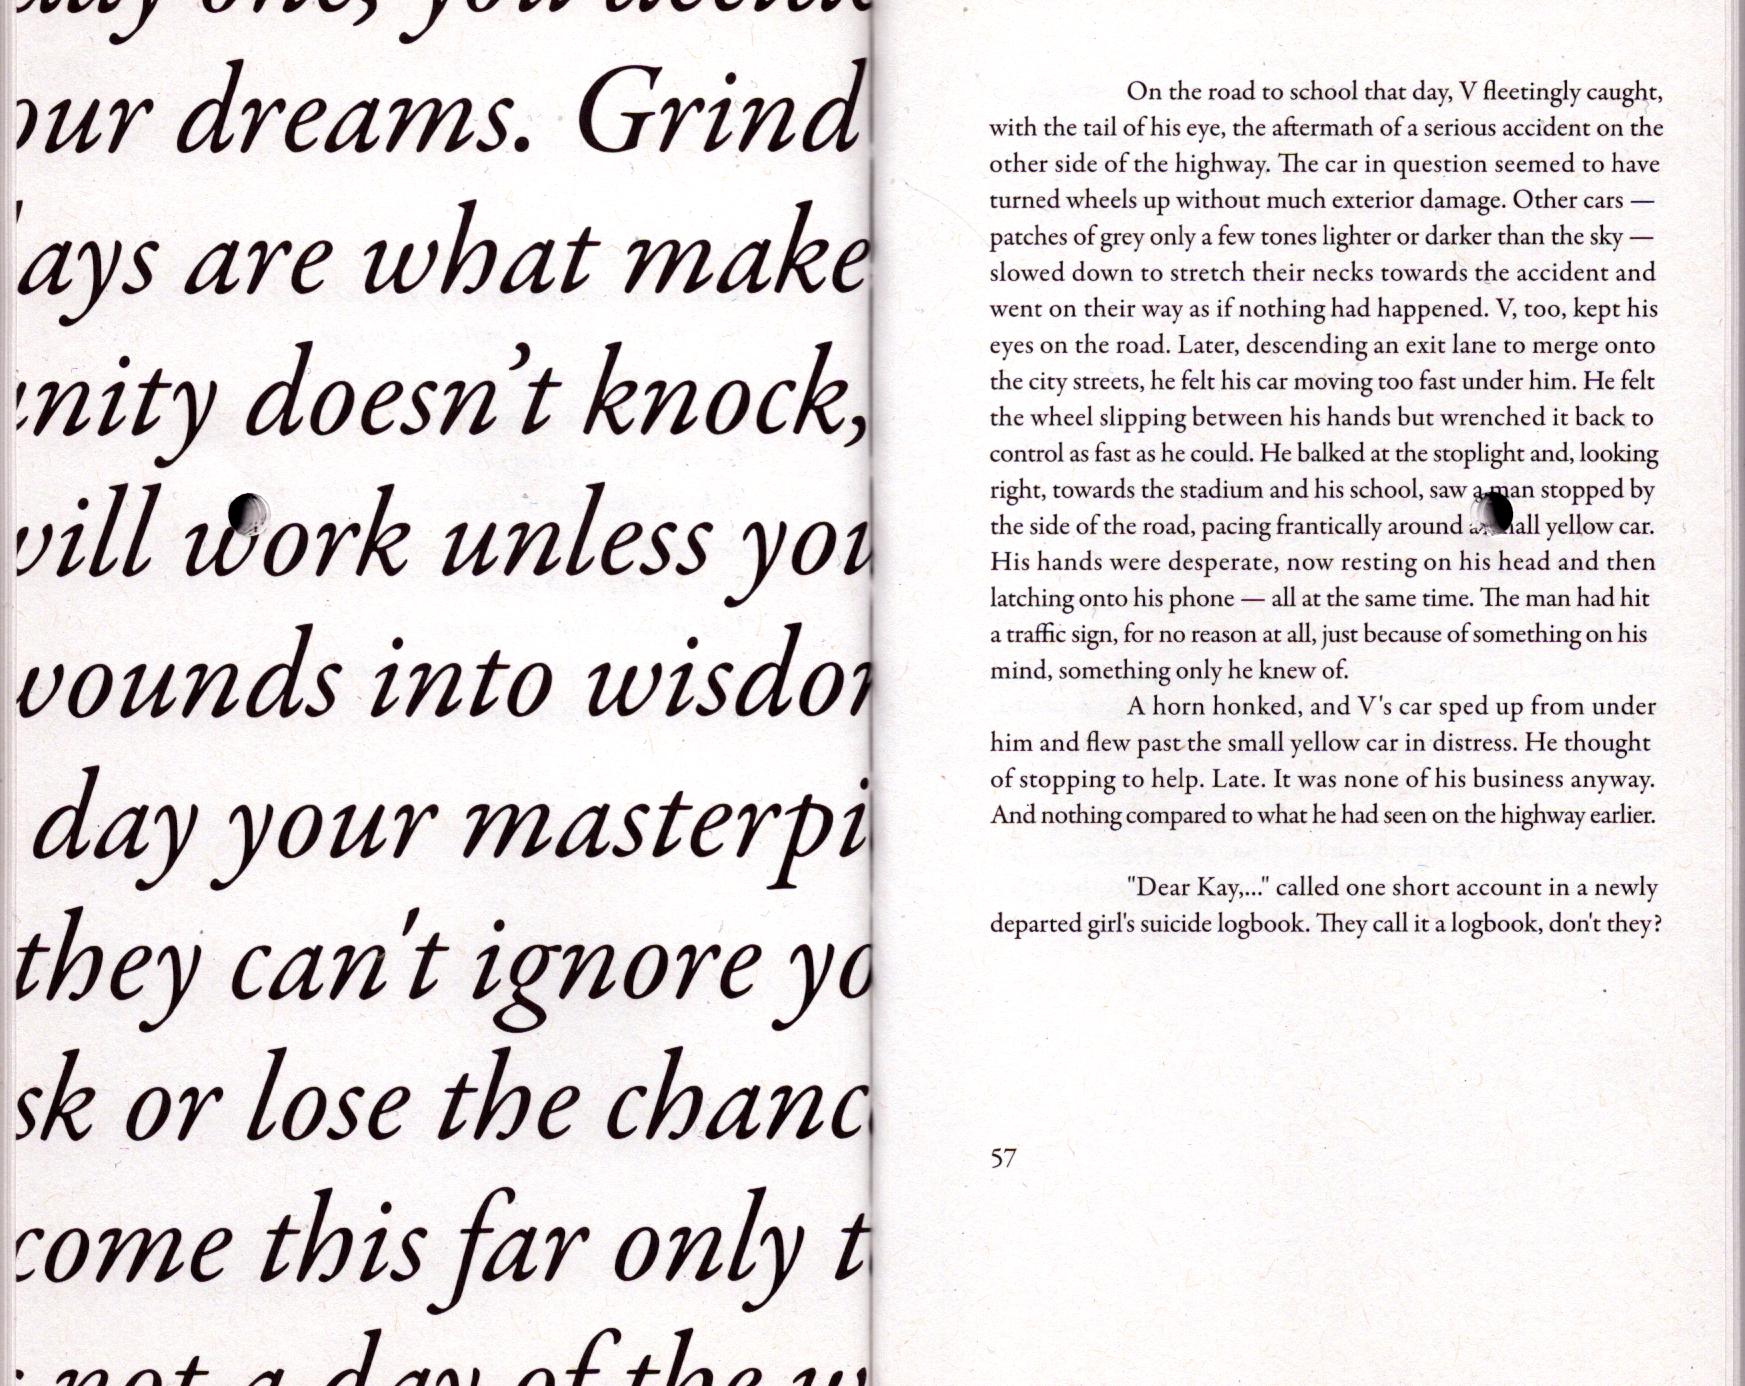 one, you
our dreams. Grind
ays are what make
nity doesn't knock,
will work unless you
wounds into wisdom
day your masterpi
they can't ignore yo
sk or lose the chanc
come this far only t
not a day of the w
On the road to school that day, V fleetingly caught,
with the tail of his eye, the aftermath of a serious accident on the
other side of the highway. The car in question seemed to have
turned wheels up without much exterior damage. Other cars —
patches of grey only a few tones lighter or darker than the sky —
slowed down to stretch their necks towards the accident and
went on their way as if nothing had happened. V, too, kept his
eyes on the road. Later, descending an exit lane to merge onto
the city streets, he felt his car moving too fast under him. He felt
the wheel slipping between his hands but wrenched it back to
control as fast as he could. He balked at the stoplight and, looking
right, towards the stadium and his school, saw a man stopped by
the side of the road, pacing frantically around a small yellow car.
His hands were desperate, now resting on his head and then
latching onto his phone — all at the same time. The man had hit
a traffic sign, for no reason at all, just because of something on his
mind, something only he knew of.
A horn honked, and V's car sped up from under
him and flew past the small yellow car in distress. He thought
of stopping to help. Late. It was none of his business anyway.
And nothing compared to what he had seen on the highway earlier.
"Dear Kay,..." called one short account in a newly
departed girl's suicide logbook. They call it a logbook, don't they?
57